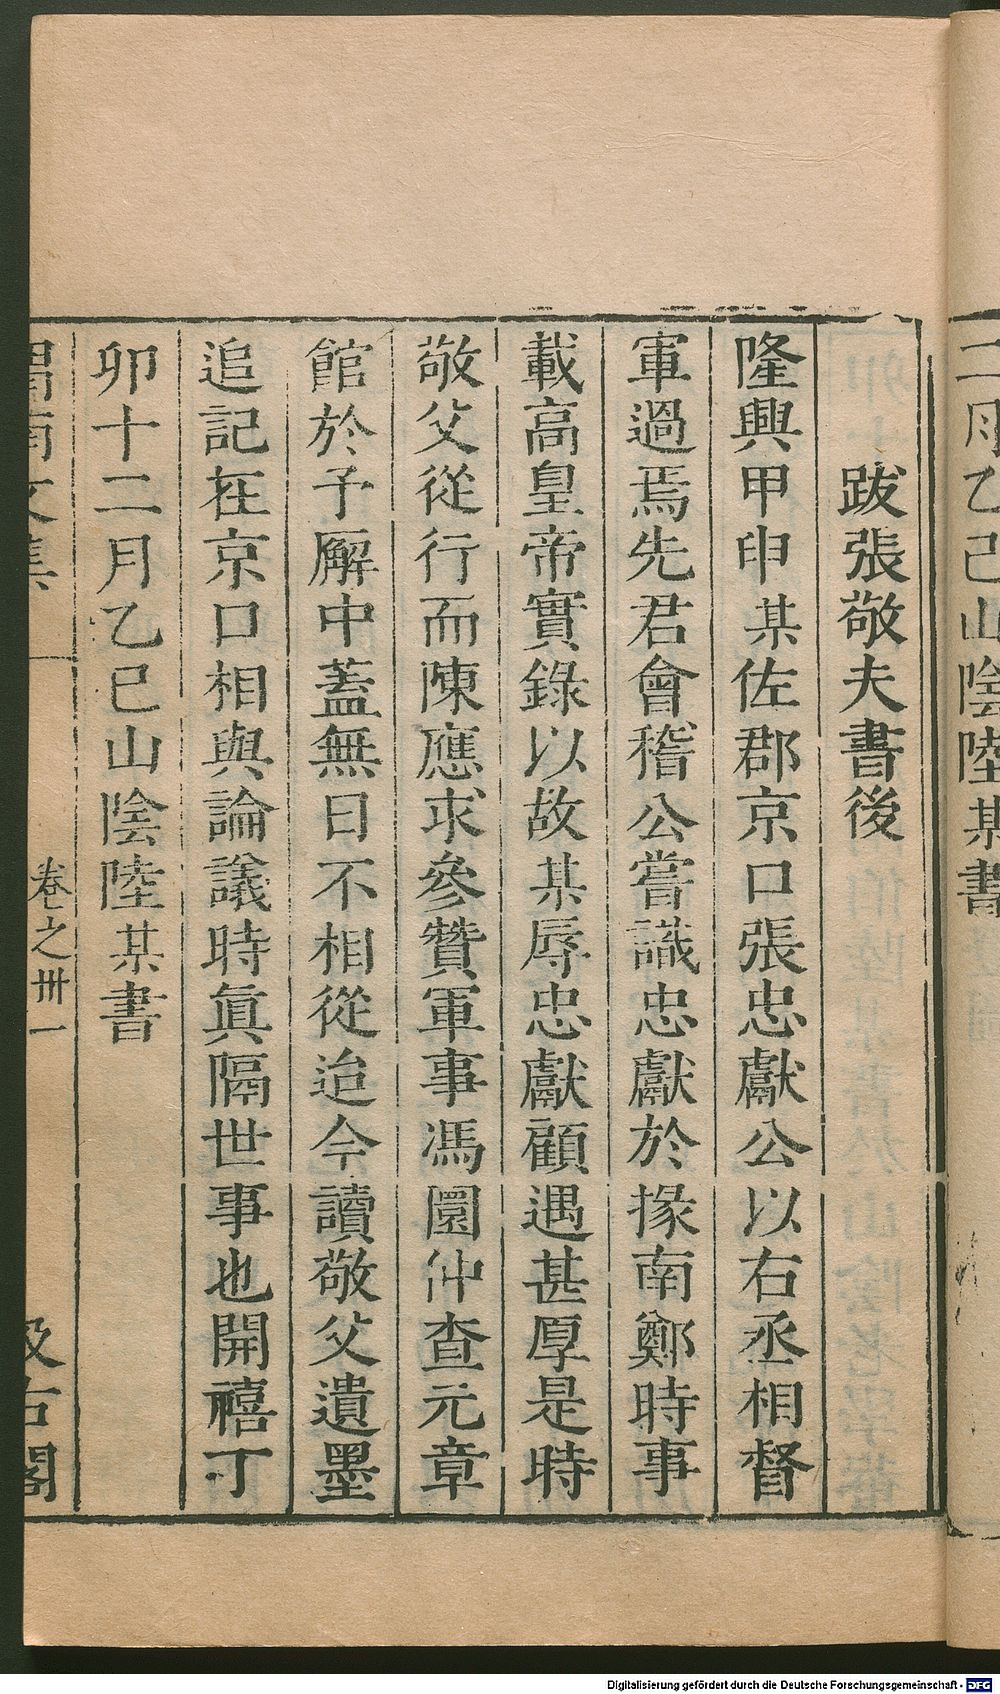 二月乙己山陰陸某書
跋張敬夫書後
隆興甲申某佐郡京口張忠獻公以右丞相督
軍過焉先君會稽公嘗識忠獻於掾南鄭時事
載高皇帝實錄以故某辱忠獻顧遇甚厚是時
敬父從行而陳應求參贊軍事馮圜仲查元章
館於予廨中蓋無日不相從迨今讀敬父遺墨
追記在京口相與論議時眞隔世事也開禧丁
卯十二月乙巳山陰陸某書
渭南文集 卷之卅一 汲古閣
Digitalisierung gefördert durch die Deutsche Forschungsgemeinschaft - DFG